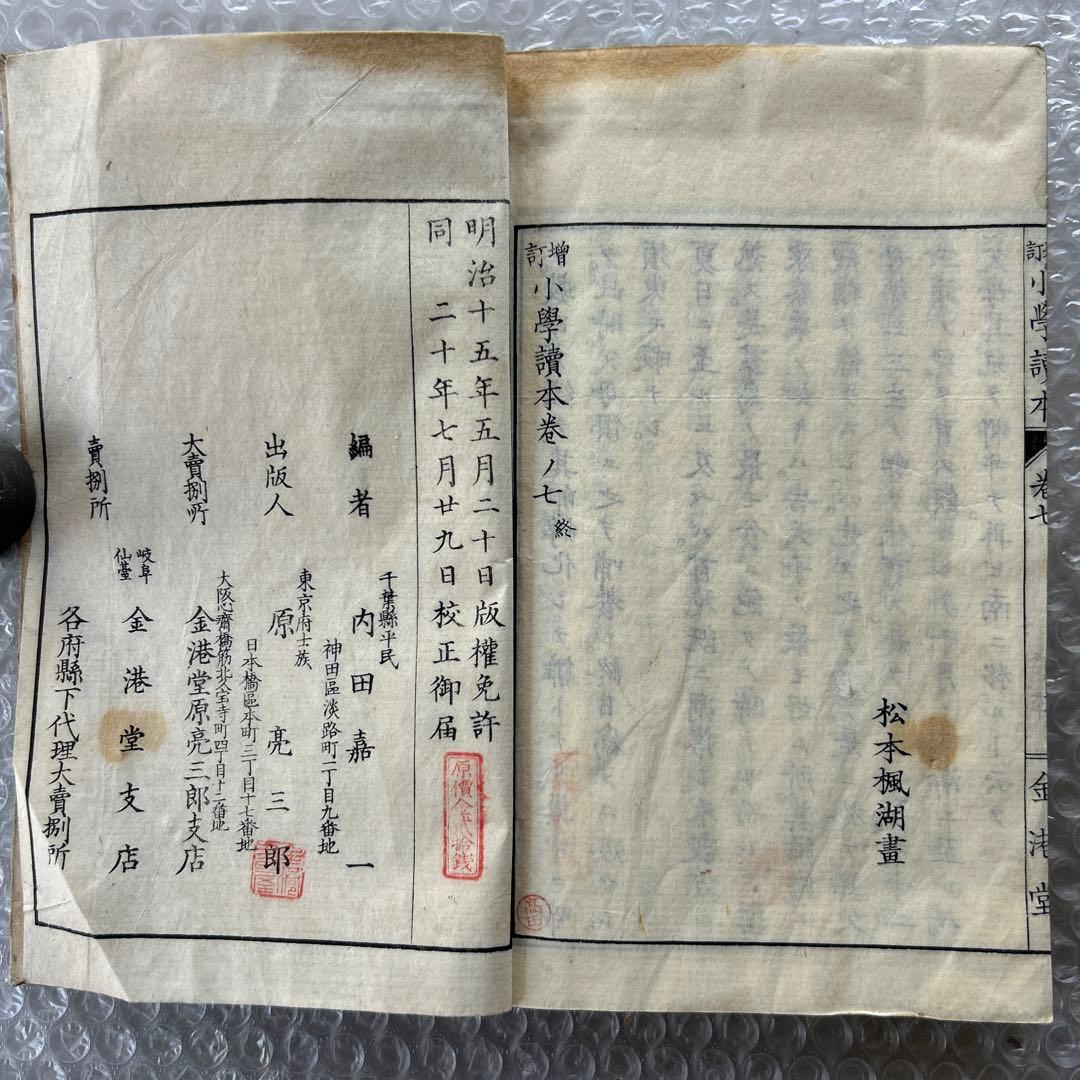 訂 小學讀本 卷七
金港堂
松本楓湖畫
增訂 小學讀本卷ノ七 終
高田
明治十五年五月二十日版權免許
同 二十年七月廿九日校正御届
編者
千葉縣平民
內田嘉一
神田區淡路町二丁目九番地
出版人
東京府士族
原亮三郎
日本橋區本町三丁目十七番地
大賣捌所
金港堂原亮三郎支店
大阪心齋橋筋北久宝寺町四丁目十二番地
賣捌所
岐阜
仙臺
金港堂支店
各府縣下代理大賣捌所